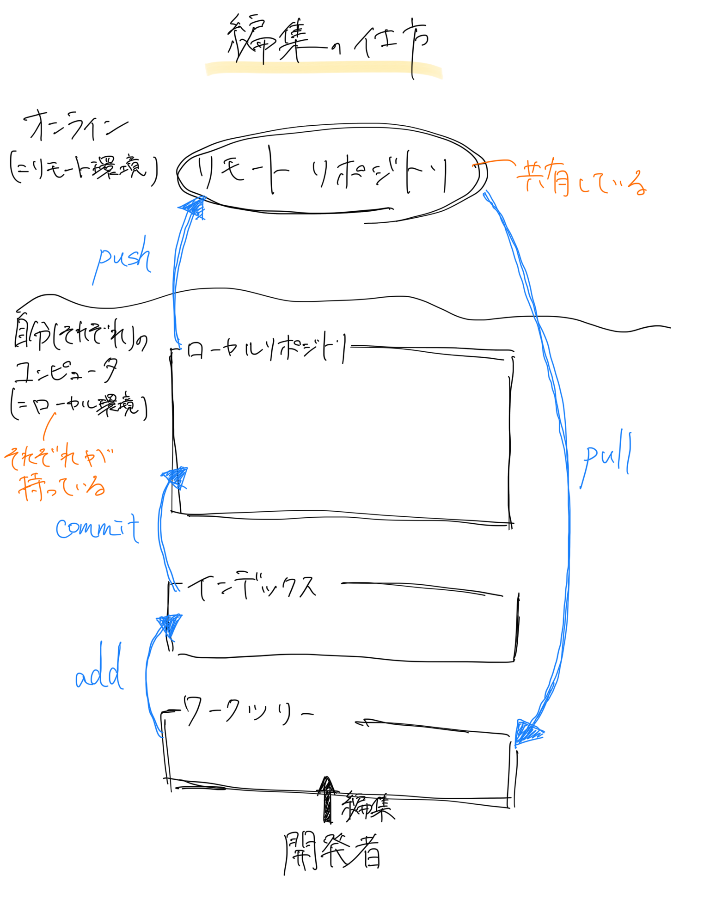 編集の仕方
オンライン
(=リモート環境)
リモート リポジトリ
共有している
push
自分(それぞれ)の
コンピュータ
(=ローカル環境)
ローカルリポジトリ
それぞれが
持っている
pull
commit
インデックス
add
ワークツリー
編集
開発者